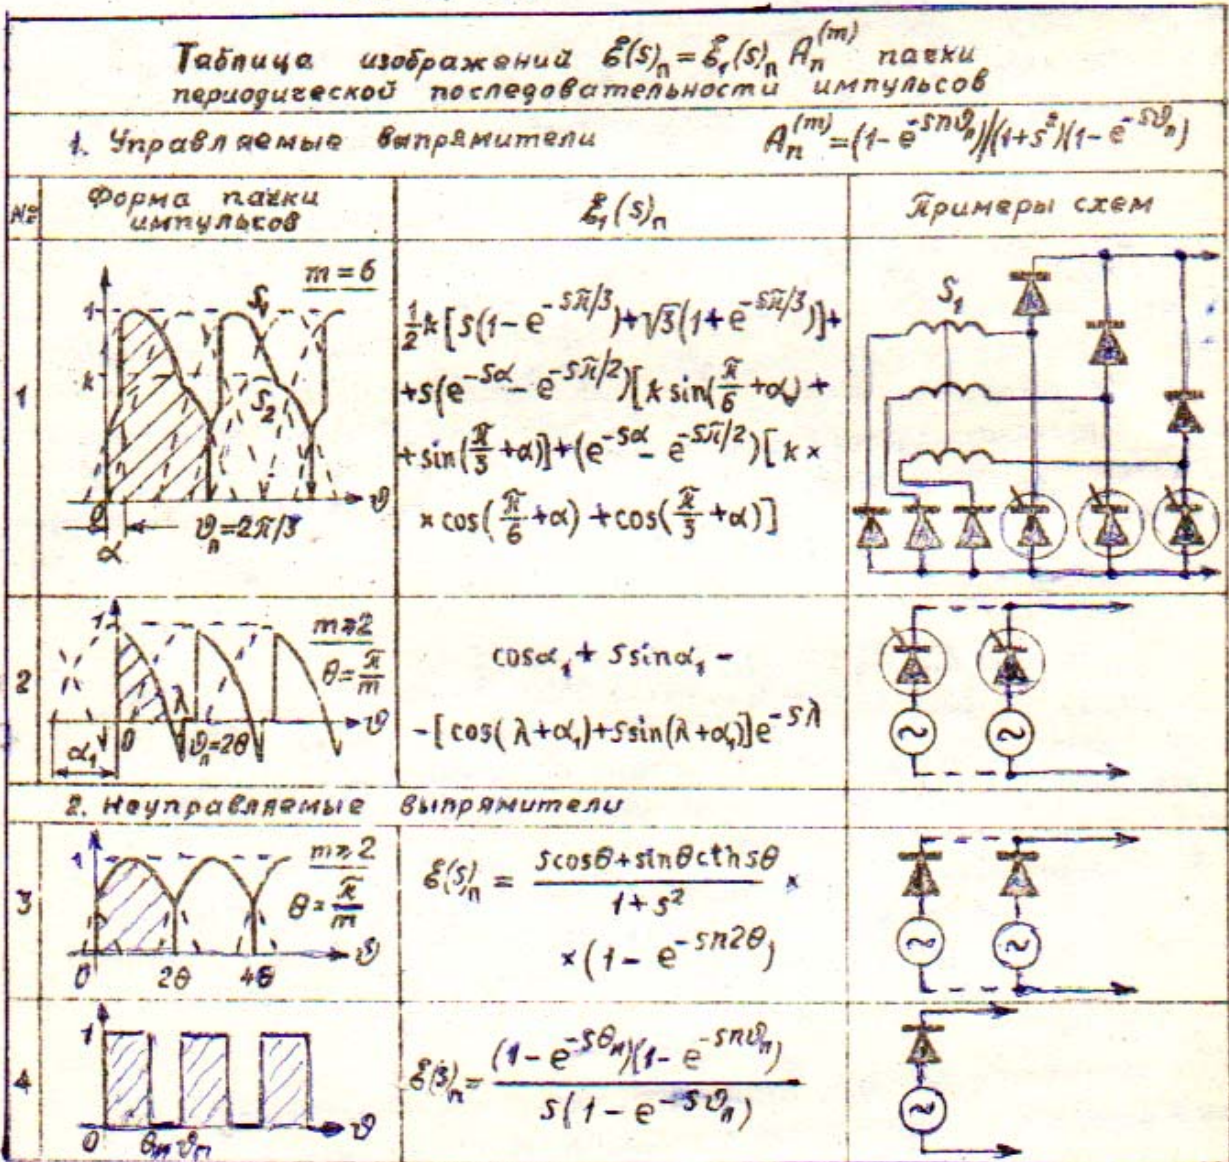 Таблица изображений ℰ(s)ₙ = ℰ₁(s)ₙ Aₙ⁽ᵐ⁾ пачки
периодической последовательности импульсов
1. Управляемые выпрямители Aₙ⁽ᵐ⁾ = (1 - e^{-snϑₙ})/(1+s²)(1 - e^{-sϑₙ})
№
Форма пачки
импульсов
ℰ₁(s)ₙ
Примеры схем
1
m = 6
1
k
S₁
S₂
0
ϑ
α
ϑₙ = 2π/3
½k[s(1 - e^{-sπ/3}) + √3(1 + e^{-sπ/3})] +
+ s(e^{-sα} - e^{-sπ/2})[k sin(π/6 + α) +
+ sin(π/3 + α)] + (e^{-sα} - e^{-sπ/2})[k ×
× cos(π/6 + α) + cos(π/3 + α)]
S₁
2
1
m ≥ 2
θ = π/m
λ
ϑ
α₁
0
ϑₙ = 2θ
cosα₁ + s sinα₁ -
- [cos(λ+α₁) + s sin(λ+α₁)]e^{-sλ}
~
~
2. Неуправляемые выпрямители
3
1
m ≥ 2
θ = π/m
ϑ
0
2θ
4θ
ℰ(s)ₙ = (s cosθ + sinθ cth sθ)/(1 + s²) ×
× (1 - e^{-sn2θ})
~
~
4
1
0
θₙ
ϑₙ
ϑ
ℰ(s)ₙ = (1 - e^{-sθₙ})(1 - e^{-snϑₙ})/s(1 - e^{-sϑₙ})
~